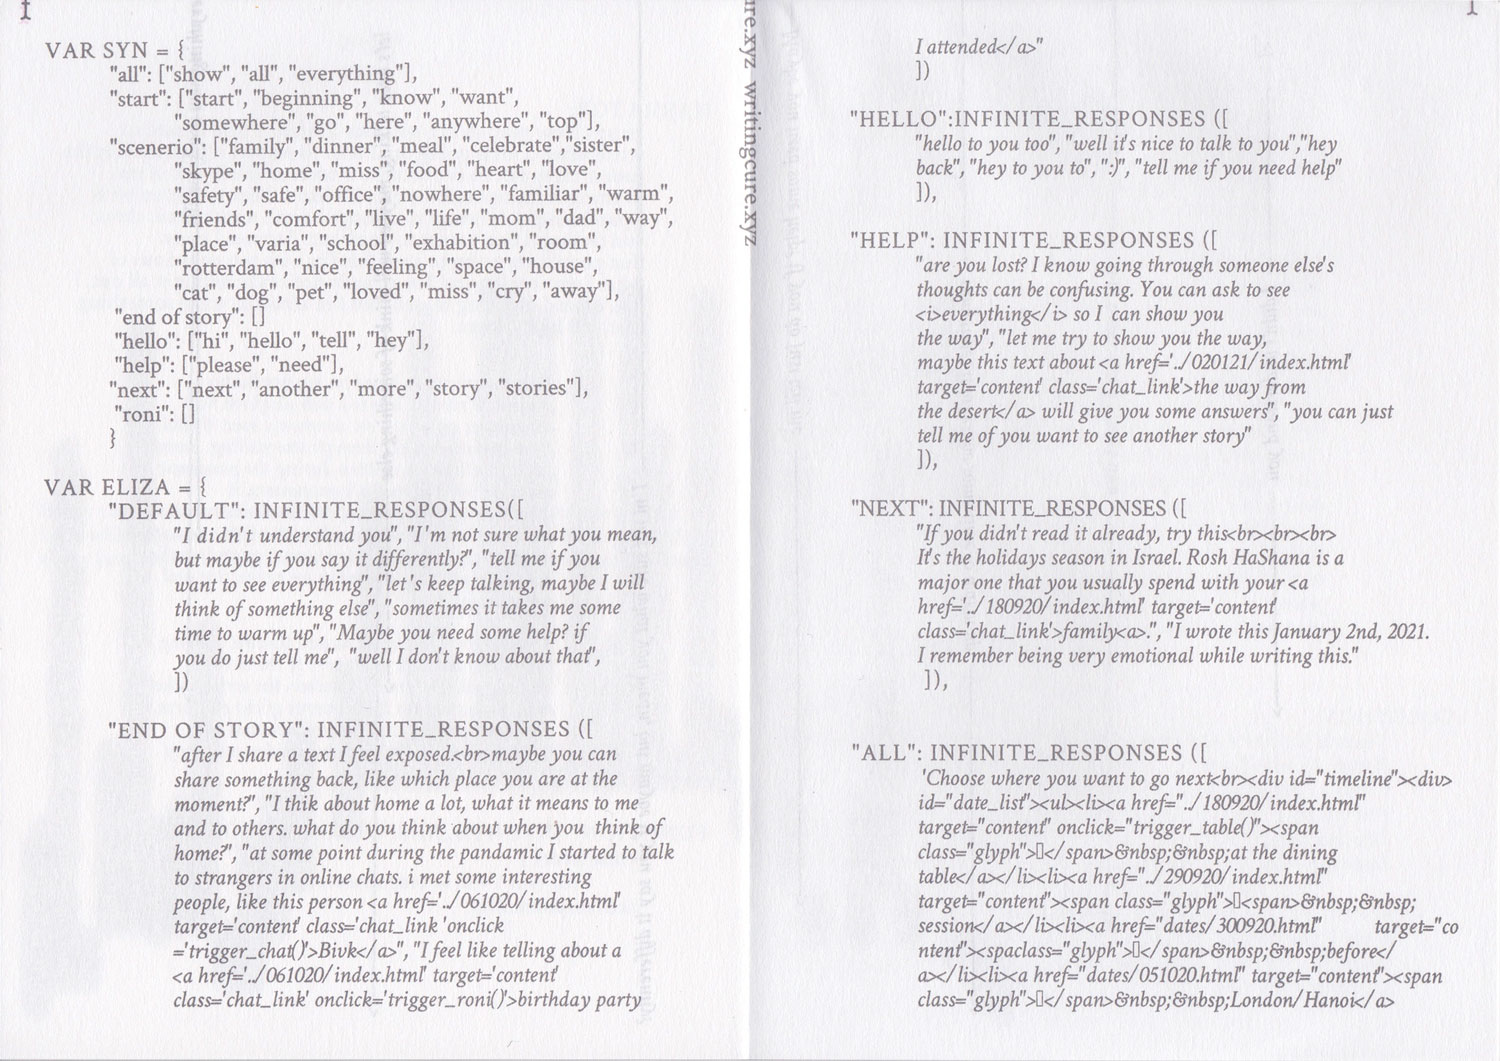 I
VAR SYN = {
"all": ["show", "all", "everything"],
"start": ["start", "beginning", "know", "want",
"somewhere", "go", "here", "anywhere", "top"],
"scenerio": ["family", "dinner", "meal", "celebrate","sister",
"skype", "home", "miss", "food", "heart", "love",
"safety", "safe", "office", "nowhere", "familiar", "warm",
"friends", "comfort", "live", "life", "mom", "dad", "way",
"place", "varia", "school", "exhabition", "room",
"rotterdam", "nice", "feeling", "space", "house",
"cat", "dog", "pet", "loved", "miss", "cry", "away"],
"end of story": []
"hello": ["hi", "hello", "tell", "hey"],
"help": ["please", "need"],
"next": ["next", "another", "more", "story", "stories"],
"roni": []
}
VAR ELIZA = {
"DEFAULT": INFINITE_RESPONSES([
"I didn't understand you", "I'm not sure what you mean,
but maybe if you say it differently?", "tell me if you
want to see everything", "let's keep talking, maybe I will
think of something else", "sometimes it takes me some
time to warm up", "Maybe you need some help? if
you do just tell me", "well I don't know about that",
])
"END OF STORY": INFINITE_RESPONSES ([
"after I share a text I feel exposed.<br>maybe you can
share something back, like which place you are at the
moment?", "I thik about home a lot, what it means to me
and to others. what do you think about when you think of
home?", "at some point during the pandamic I started to talk
to strangers in online chats. i met some interesting
people, like this person <a href='../061020/index.html'
target='content' class='chat_link 'onclick
='trigger_chat()'>Bivk</a>", "I feel like telling about a
<a href='../061020/index.html' target='content'
class='chat_link' onclick='trigger_roni()'>birthday party
re.xyz writingcure.xyz
I
I attended</a>"
])
"HELLO":INFINITE_RESPONSES ([
"hello to you too", "well it's nice to talk to you","hey
back", "hey to you to", ":)", "tell me if you need help"
]),
"HELP": INFINITE_RESPONSES ([
"are you lost? I know going through someone else's
thoughts can be confusing. You can ask to see
<i>everything</i> so I can show you
the way", "let me try to show you the way,
maybe this text about <a href='../020121/index.html'
target='content' class='chat_link'>the way from
the desert</a> will give you some answers", "you can just
tell me of you want to see another story"
]),
"NEXT": INFINITE_RESPONSES ([
"If you didn't read it already, try this<br><br><br>
It's the holidays season in Israel. Rosh HaShana is a
major one that you usually spend with your <a
href='../180920/index.html' target='content'
class='chat_link'>family<a>.", "I wrote this January 2nd, 2021.
I remember being very emotional while writing this."
]),
"ALL": INFINITE_RESPONSES ([
'Choose where you want to go next<br><div id="timeline"><div>
id="date_list"><ul><li><a href="../180920/index.html"
target="content" onclick="trigger_table()"><span
class="glyph">▯</span>&nbsp;&nbsp;at the dining
table</a></li><li><a href="../290920/index.html"
target="content"><span class="glyph">▯<span>&nbsp;&nbsp;
session</a></li><li><a href="dates/300920.html" target="co
ntent"><spaclass="glyph">▯</span>&nbsp;&nbsp;before</
a></li><li><a href="dates/051020.html" target="content"><span
class="glyph">▯</span>&nbsp;&nbsp;London/Hanoi</a>